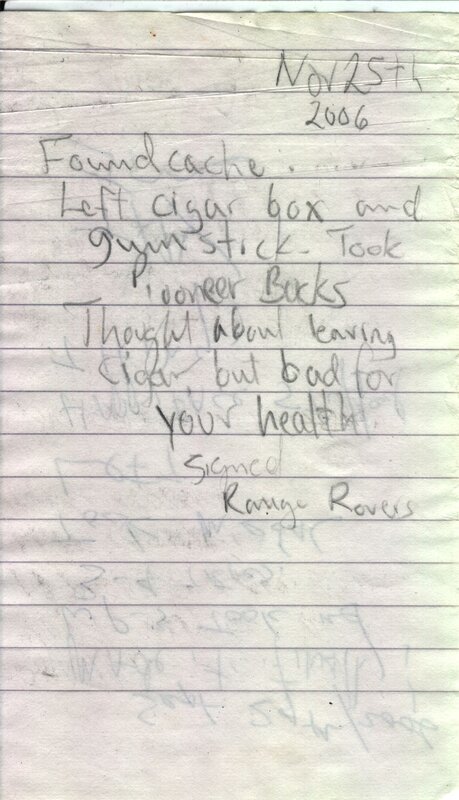 Nov 25th
2006
Found cache.......
Left cigar box and
gym stick. Took
Pioneer Bucks
Thought about leaving
cigar, but bad for
your health
signed
Range Rovers